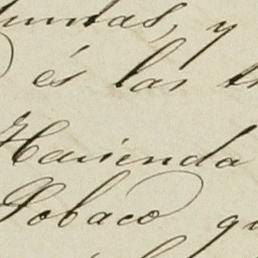 juntas, y
és las
Hacienda
Tobaco